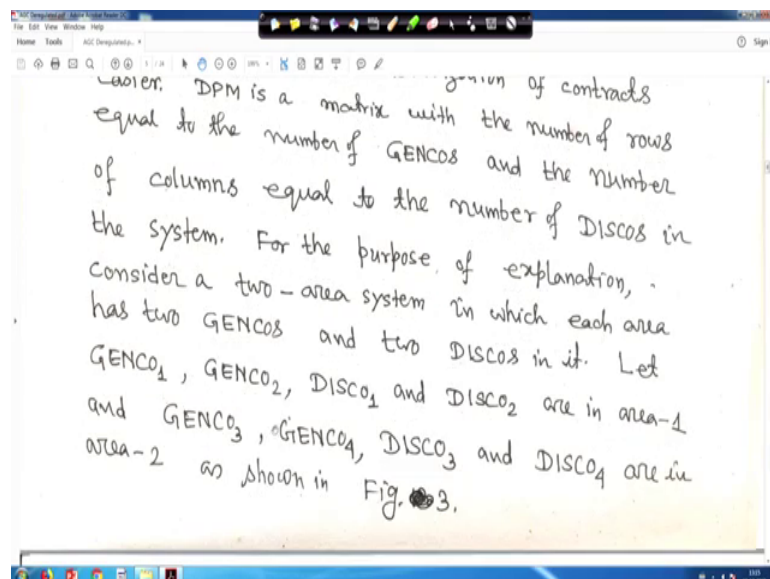 AGC Deregulated.pdf - Adobe Acrobat Reader DC
File Edit View Window Help
Home Tools AGC Deregulated.p... × Sign
1 / 24
Easier. DPM is a matrix with the number of rows of contracts
equal to the number of GENCOS and the number
of columns equal to the number of DISCOS in
the system. For the purpose of explanation,
consider a two-area system in which each area
has two GENCOS and two DISCOS in it. Let
GENCO1, GENCO2, DISCO1 and DISCO2 are in area-1
and GENCO3, GENCO4, DISCO3 and DISCO4 are in
area-2 as shown in Fig. 3.